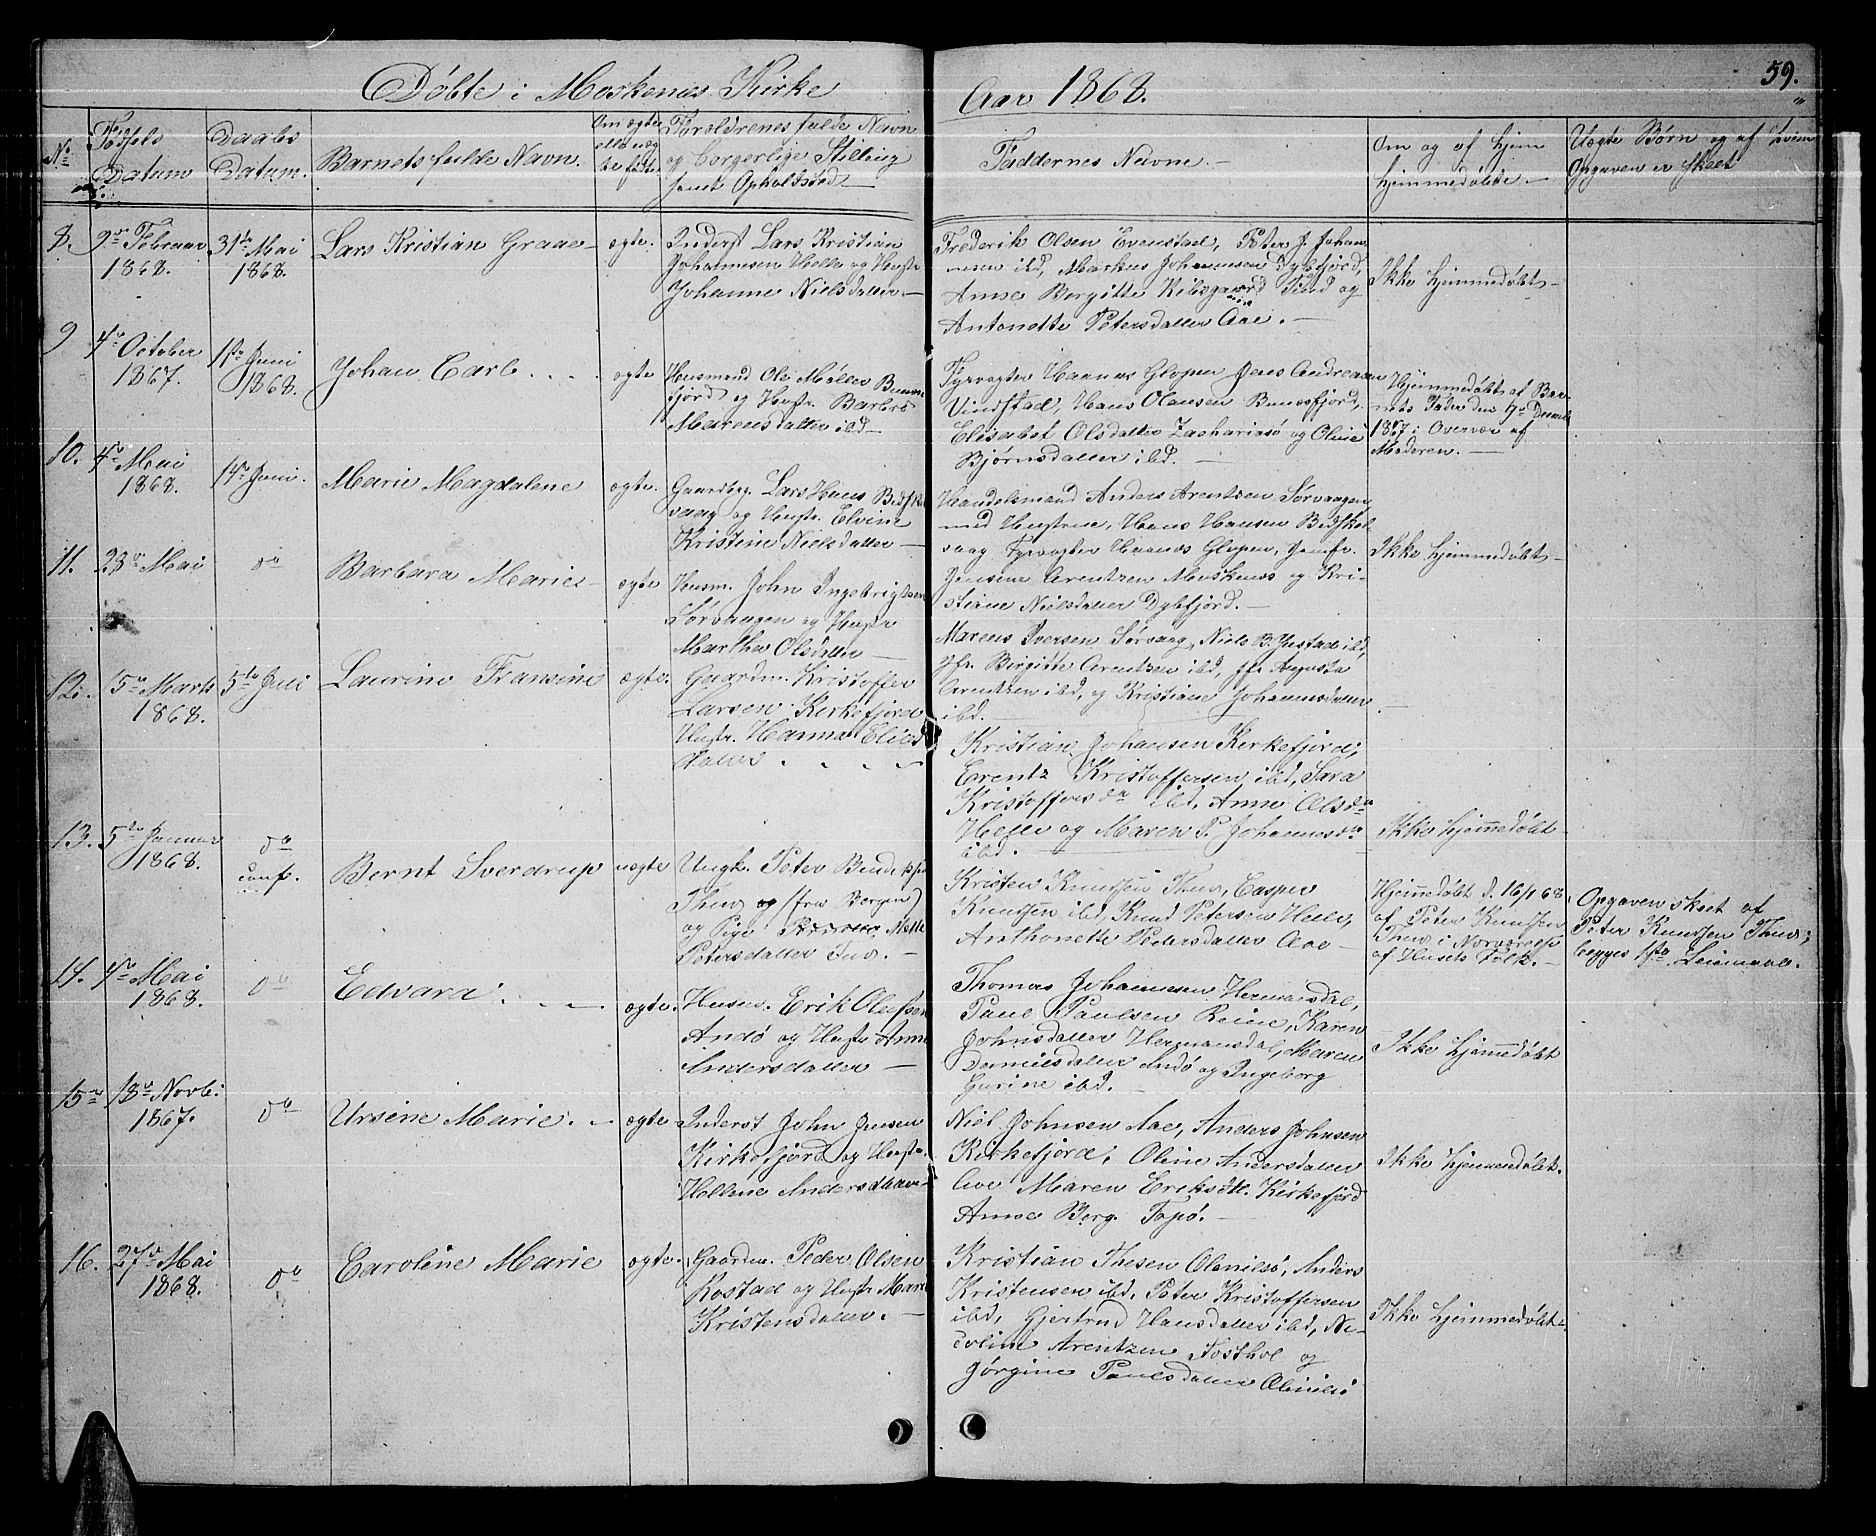 59.
Döbte i Moskenes Kirke
Aar 1868.
No
Födsels
Datum
Daabs
Datum.
Barnets fulde Navn.
Om ægte
eller uæg
te födt
Foroldrenes fulde Navn
og borgerlige Stilling
samt Opholdsted
Faddernes Navne.
Om og af hjem
hjemmedöbte
Uægte Börn og af hvem
Opgaven er skeet
8.
9de Februar
1868.
31te Mai
1868.
Lars Kristian Graae
ægte.
Inderst Lars Kristian
Johannesen Helle og Hustr
Johanne Nielsdatter
Frederik Olsen Evenstad, Peter J. Johan
nesen ibd, Markus Johannesen Dybfjord,
Anne Bergitte Kibsgaard Tind og
Antonette Petersdatter Aae.
Ikke hjemmedöbt
9
4de October
1867.
1ste Juni
1868.
Johan Carl
ægte
Husmand Ole Möller Bunnes
fjord og Hustr. Barbro
Marensdatter ibd
Fyrvogter Haanes Glopen Jens Andreasen
Vindstad, Hans Olausen Bunesfjord,
Elisabet Olsdatter Zachariasö og Oline
Björnsdatter ibd.
Hjemmedöbt af Bar
nets Fader den 17de Decemb
1867 i Overvær af
Moderen.
10.
4de Mai
1868.
14de Juni.
Marie Magdalene
ægte.
Gaardbrg. Lars Hans
vaag og Hustr. Elvine
Kristine Nielsdatter
Handelsmand Anders Arentzen Sörvaagen
med Hustrue, Hans Hansen
vaag Fyrvogter Haanes Glopen, Jomfr.
Jensine Arentzen Moskenes og Kri-
stiane Nielsdatter Dybfjord.
Ikke hjemmedöbt
11.
23de Mai
do
Barbara Marie
ægte
Husm. John Ingebrigtsen
Sörvaagen og Hustr
Martha Olsdatter
Marcus Iversen Sörvaag, Niels B. Ystad ibd,
Jfr. Birgitte Arentzen ibd, Jfr. Augusta
Arentzen ibd, og Kristiane Johannesdatter
ibd.
12.
15de Marts
1868.
5te Juli
Laurine Fransine
ægte.
Gaardm. Kristoffer
Larsen Kirkefjord
Hustr. Hanna Elias
datter
Kristian Johansen Kirkefjord,
Erentz Kristoffersen ibd, Sara
Kristoffersdr ibd, Anne Olsdr
Helle og Maren P. Johannesdr
ibd.
Ikke hjemmedöbt
13.
5te Januar
1868.
do
conf.
Bernt Sverdrup
uægte
Ungk. Peter
Thue og (fra Bergen)
og Pige Mette
Petersdatter Tuv.
Kristen Knudsen Thuv, Casper
Knudsen ibd, Knud Petersen Helle,
Anthonette Pedersdatter Aae
Hjemmedöbt d. 16/1 68
af Peter Knudsen
Thuv i Nærværelse
af Husets Folk.
Opgaven skeet af
Peter Knudsen Thuv;
begges 1ste Leiermaal.
14.
4de Mai
1868.
do
Edvard
ægte.
Husm. Erik Olufsen
Andö og Hustr Anne
Andersdatter
Thomas Johannesen Hermansdal,
Paul Paulsen Reine, Karen
Johnsdatter Hermansdal, Maren
Danielsdatter Andö og Ingeborg
Gurine ibd.
Ikke hjemmedöbt
15de
18de Novb.
1867.
do
Ursine Marie
ægte
Inderst John Jensen
Kirkefjord og Hustr.
Hellene Andersdatter
Niel Johnsen Aae, Anders Johnsen
Kirkefjord, Oline Andersdatter
Aae Maren Eriksdtt. Kirkefjord
Anne Berg. Topö.
Ikke hjemmedöbt.
16.
27de Mai
1868.
do
Caroline Marie
ægte.
Gaardm. Peder Olsen
Rostad og Hustr Maren
Kristensdatter.
Kristian Thesen Olenilsö, Anders
Kristensen ibd, Peter Kristoffersen
ibd, Gjertrud Hansdatter ibd, Ni-
coline Arentzen og
Jörgine Paulsdatter Olenilsö
Ikke hjemmedöbt